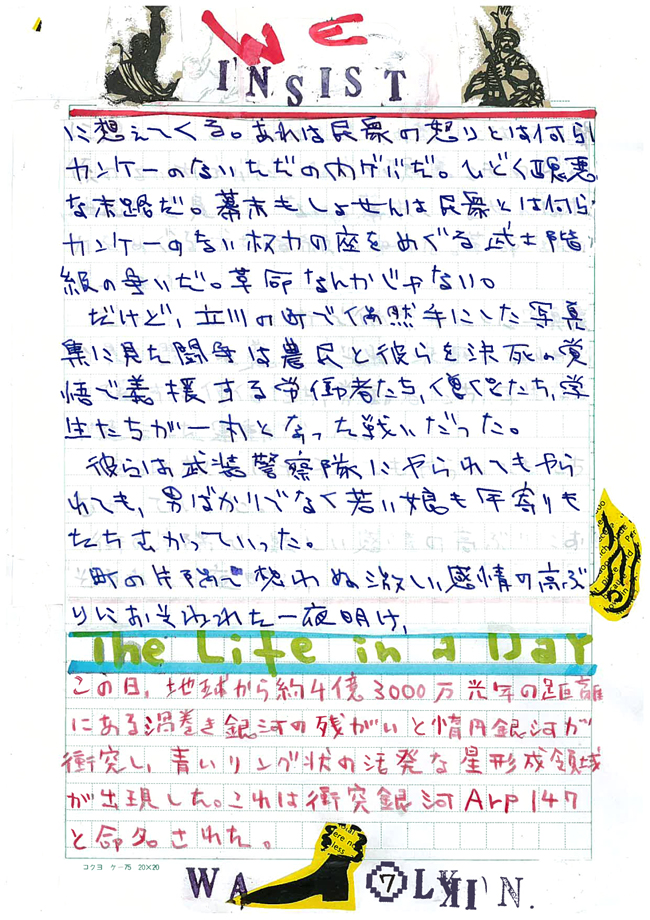 WE
INSIST
に想えてくる。あれは民衆の怒りとは何ら
カンケーのないただの内ゲバだ。ひどく醜悪
な末路だ。幕末もしょせんは民衆とは何ら
カンケーのない权力の座をめぐる武士階
級の争いだ。革命なんかじゃない。
だけど、立川の町で偶然手にした写真
集に見た闘争は農民と彼らを決死の覚
悟で義援する労働者たち、たち、学
生たちが一丸となった戦いだった。
彼らは武装警察隊にやられてもやら
れても、男ばかりでなく若い娘も年寄りも
たちむかっていった。
町の片隅で想わぬ激しい感情の高ぶ
りにおそわれた一夜明け、
The Life in a Day
この日、地球から約4億3000万光年の距離
にある渦巻き銀河の残がいと惰円銀河が
衝突し、青いリング状の活発な星形成領域
が出現した。これは衝突銀河Arp147
と命名された。
コクヨ ケー75 20×20
WA 7 LKI'N.